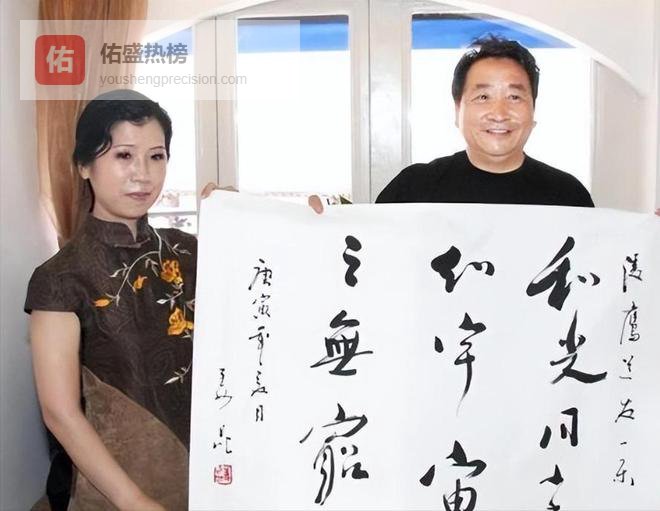 佑
佑盛热榜
youshengprecision.com
鹰兰友一乐
和光同
知宇宙
之無窮
庚寅年夏月
姜昆